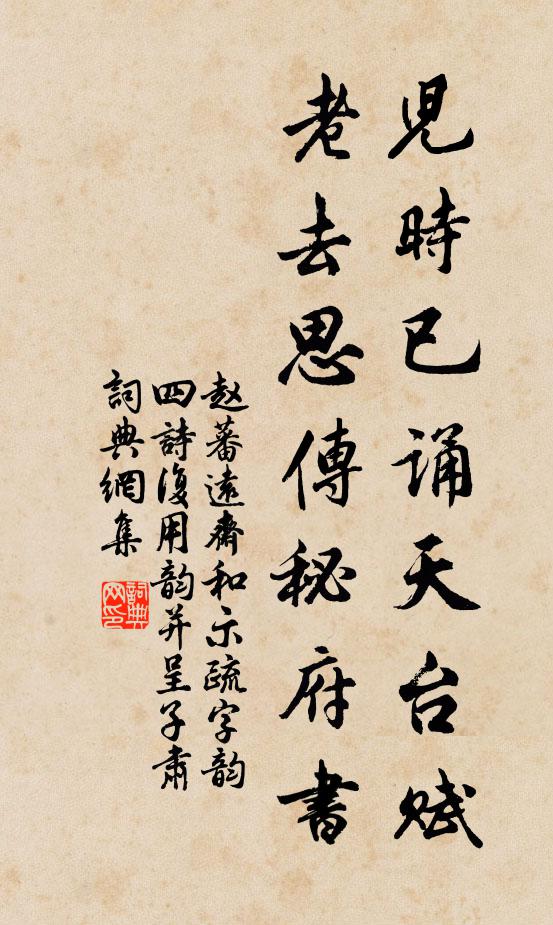 兒時已誦天台賦
老去思傳秘府書
赵蕃遠齋和示疏字韵
四詩復用韵并呈子肅
詞典網集
詞典
网印